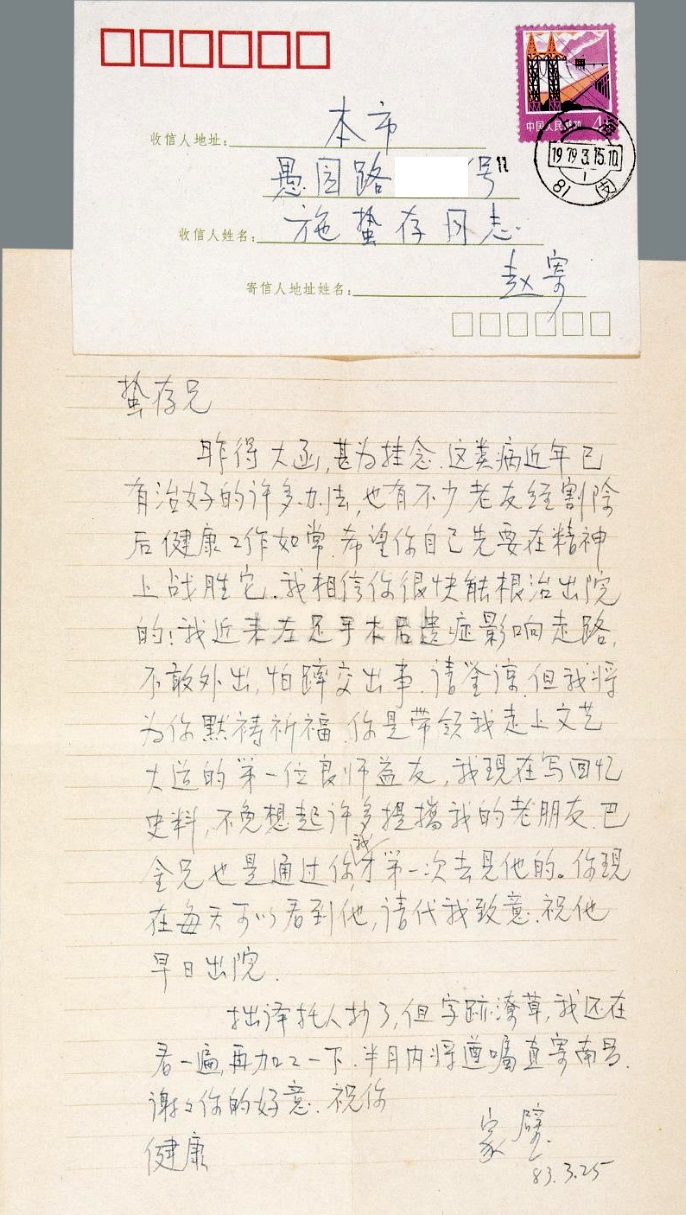 中国人民邮政 4
上海
1979.3.15.10
1
81 支
收信人地址: 本市
愚园路 号
收信人姓名: 施蛰存同志
寄信人地址姓名: 赵寄
蛰存兄
昨得大函,甚为挂念.这类病近年已
有治好的许多办法,也有不少老友经割除
后健康工作如常.希望你自己先要在精神
上战胜它.我相信你很快能根治出院
的!我近来左足手术后遗症影响走路,
不敢外出,怕蹿交出事.请鉴谅.但我将
为你默祷祈福.你是带领我走上文艺
大道的第一位良师益友,我现在写回忆
史料,不免想起许多提携我的老朋友.巴
金兄也是通过你我才第一次去见他的。你现
在每天可以看到他,请代我致意.祝他
早日出院.
拙译托人抄了,但字跡潦草,我还在
看一遍,再加工一下.半月内将遵嘱直寄南昌.
谢々你的好意.祝你
健康
家璧
83.3.25